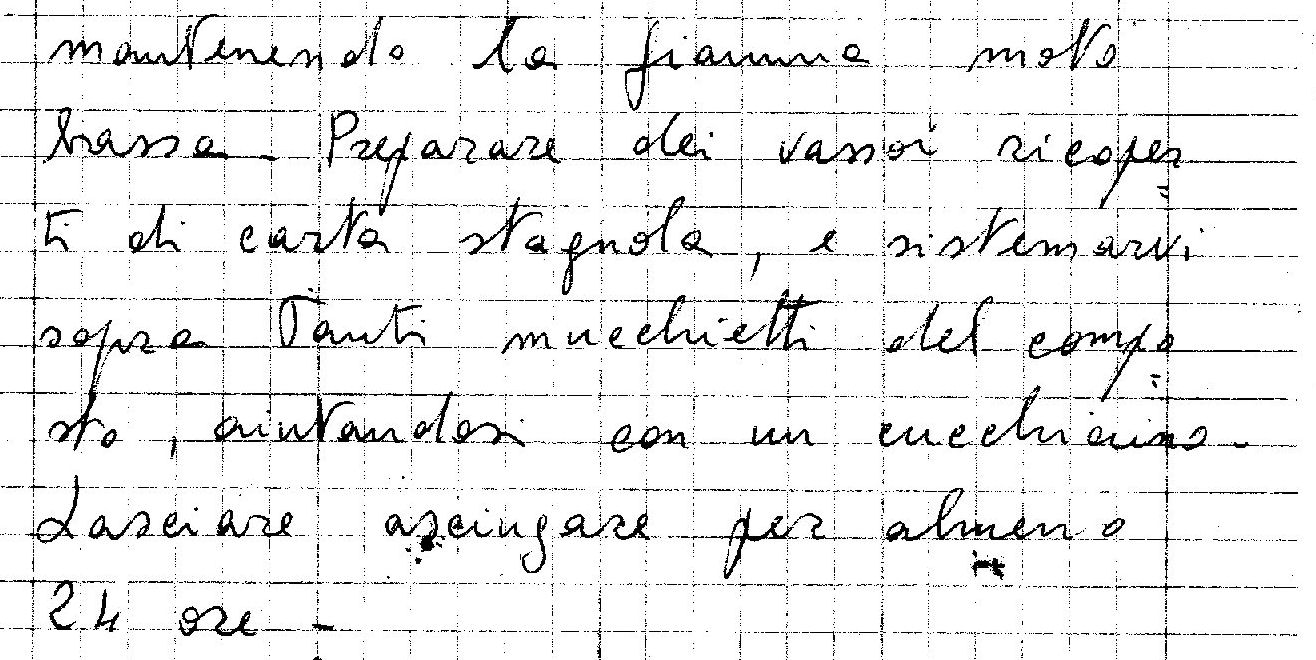 mantenendo la fiamma molto
bassa - Preparare dei vassoi ricoper=
ti di carta stagnola, e sistemarvi
sopra Tanti mucchietti del compo=
sto, aiutandosi con un cucchiaino -
Lasciare asciugare per almeno
24 ore -